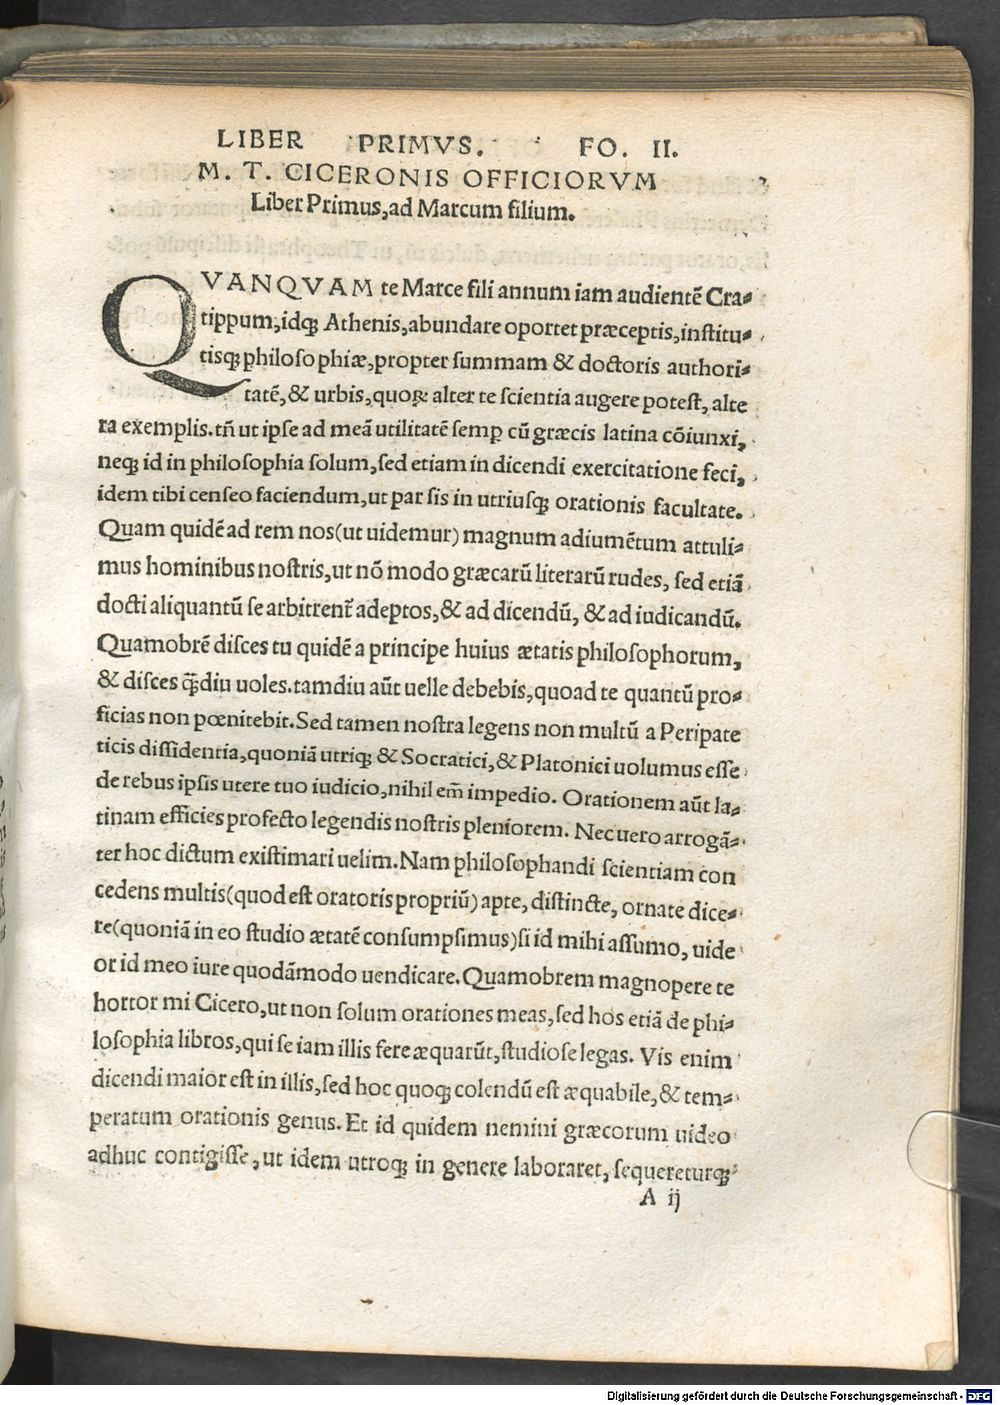 LIBER PRIMVS. FO. II.
M. T. CICERONIS OFFICIORVM
Liber Primus, ad Marcum filium.
QVANQVAM te Marce fili annum iam audientē Cra⸗
tippum, idqꝫ Athenis, abundare oportet præceptis, institu⸗
tisqꝫ philosophiæ, propter summam & doctoris authori⸗
tatē, & urbis, quoꝝ alter te scientia augere potest, alte
ra exemplis. tñ ut ipse ad meā utilitatē semꝑ cū græcis latina cōiunxi,
neqꝫ id in philosophia solum, sed etiam in dicendi exercitatione feci,
idem tibi censeo faciendum, ut par sis in utriusqꝫ orationis facultate.
Quam quidē ad rem nos (ut uidemur) magnum adiumētum attuli⸗
mus hominibus nostris, ut nō modo græcarū literarū rudes, sed etiā
docti aliquantū se arbitrent᷑ adeptos, & ad dicendū, & ad iudicandū.
Quamobrē disces tu quidē a principe huius ætatis philosophorum,
& disces q̄diu uoles. tamdiu aūt uelle debebis, quoad te quantū pro⸗
ficias non pœnitebit. Sed tamen nostra legens non multū a Peripate
ticis dissidentia, quoniā utriqꝫ & Socratici, & Platonici uolumus esse
de rebus ipsis utere tuo iudicio, nihil em̄ impedio. Orationem aūt la⸗
tinam efficies profecto legendis nostris pleniorem. Nec uero arrogā⸗
ter hoc dictum existimari uelim. Nam philosophandi scientiam con
cedens multis (quod est oratoris propriū) apte, distincte, ornate dice⸗
re (quoniā in eo studio ætatē consumpsimus) si id mihi assumo, uide
or id meo iure quodāmodo uendicare. Quamobrem magnopere te
hortor mi Cicero, ut non solum orationes meas, sed hos etiā de phi⸗
losophia libros, qui se iam illis fere æquarūt, studiose legas. Vis enim
dicendi maior est in illis, sed hoc quoqꝫ colendū est æquabile, & tem⸗
peratum orationis genus. Et id quidem nemini græcorum uideo
adhuc contigisse, ut idem utroqꝫ in genere laboraret, sequereturqꝫ
A ij
Digitalisierung gefördert durch die Deutsche Forschungsgemeinschaft - DFG